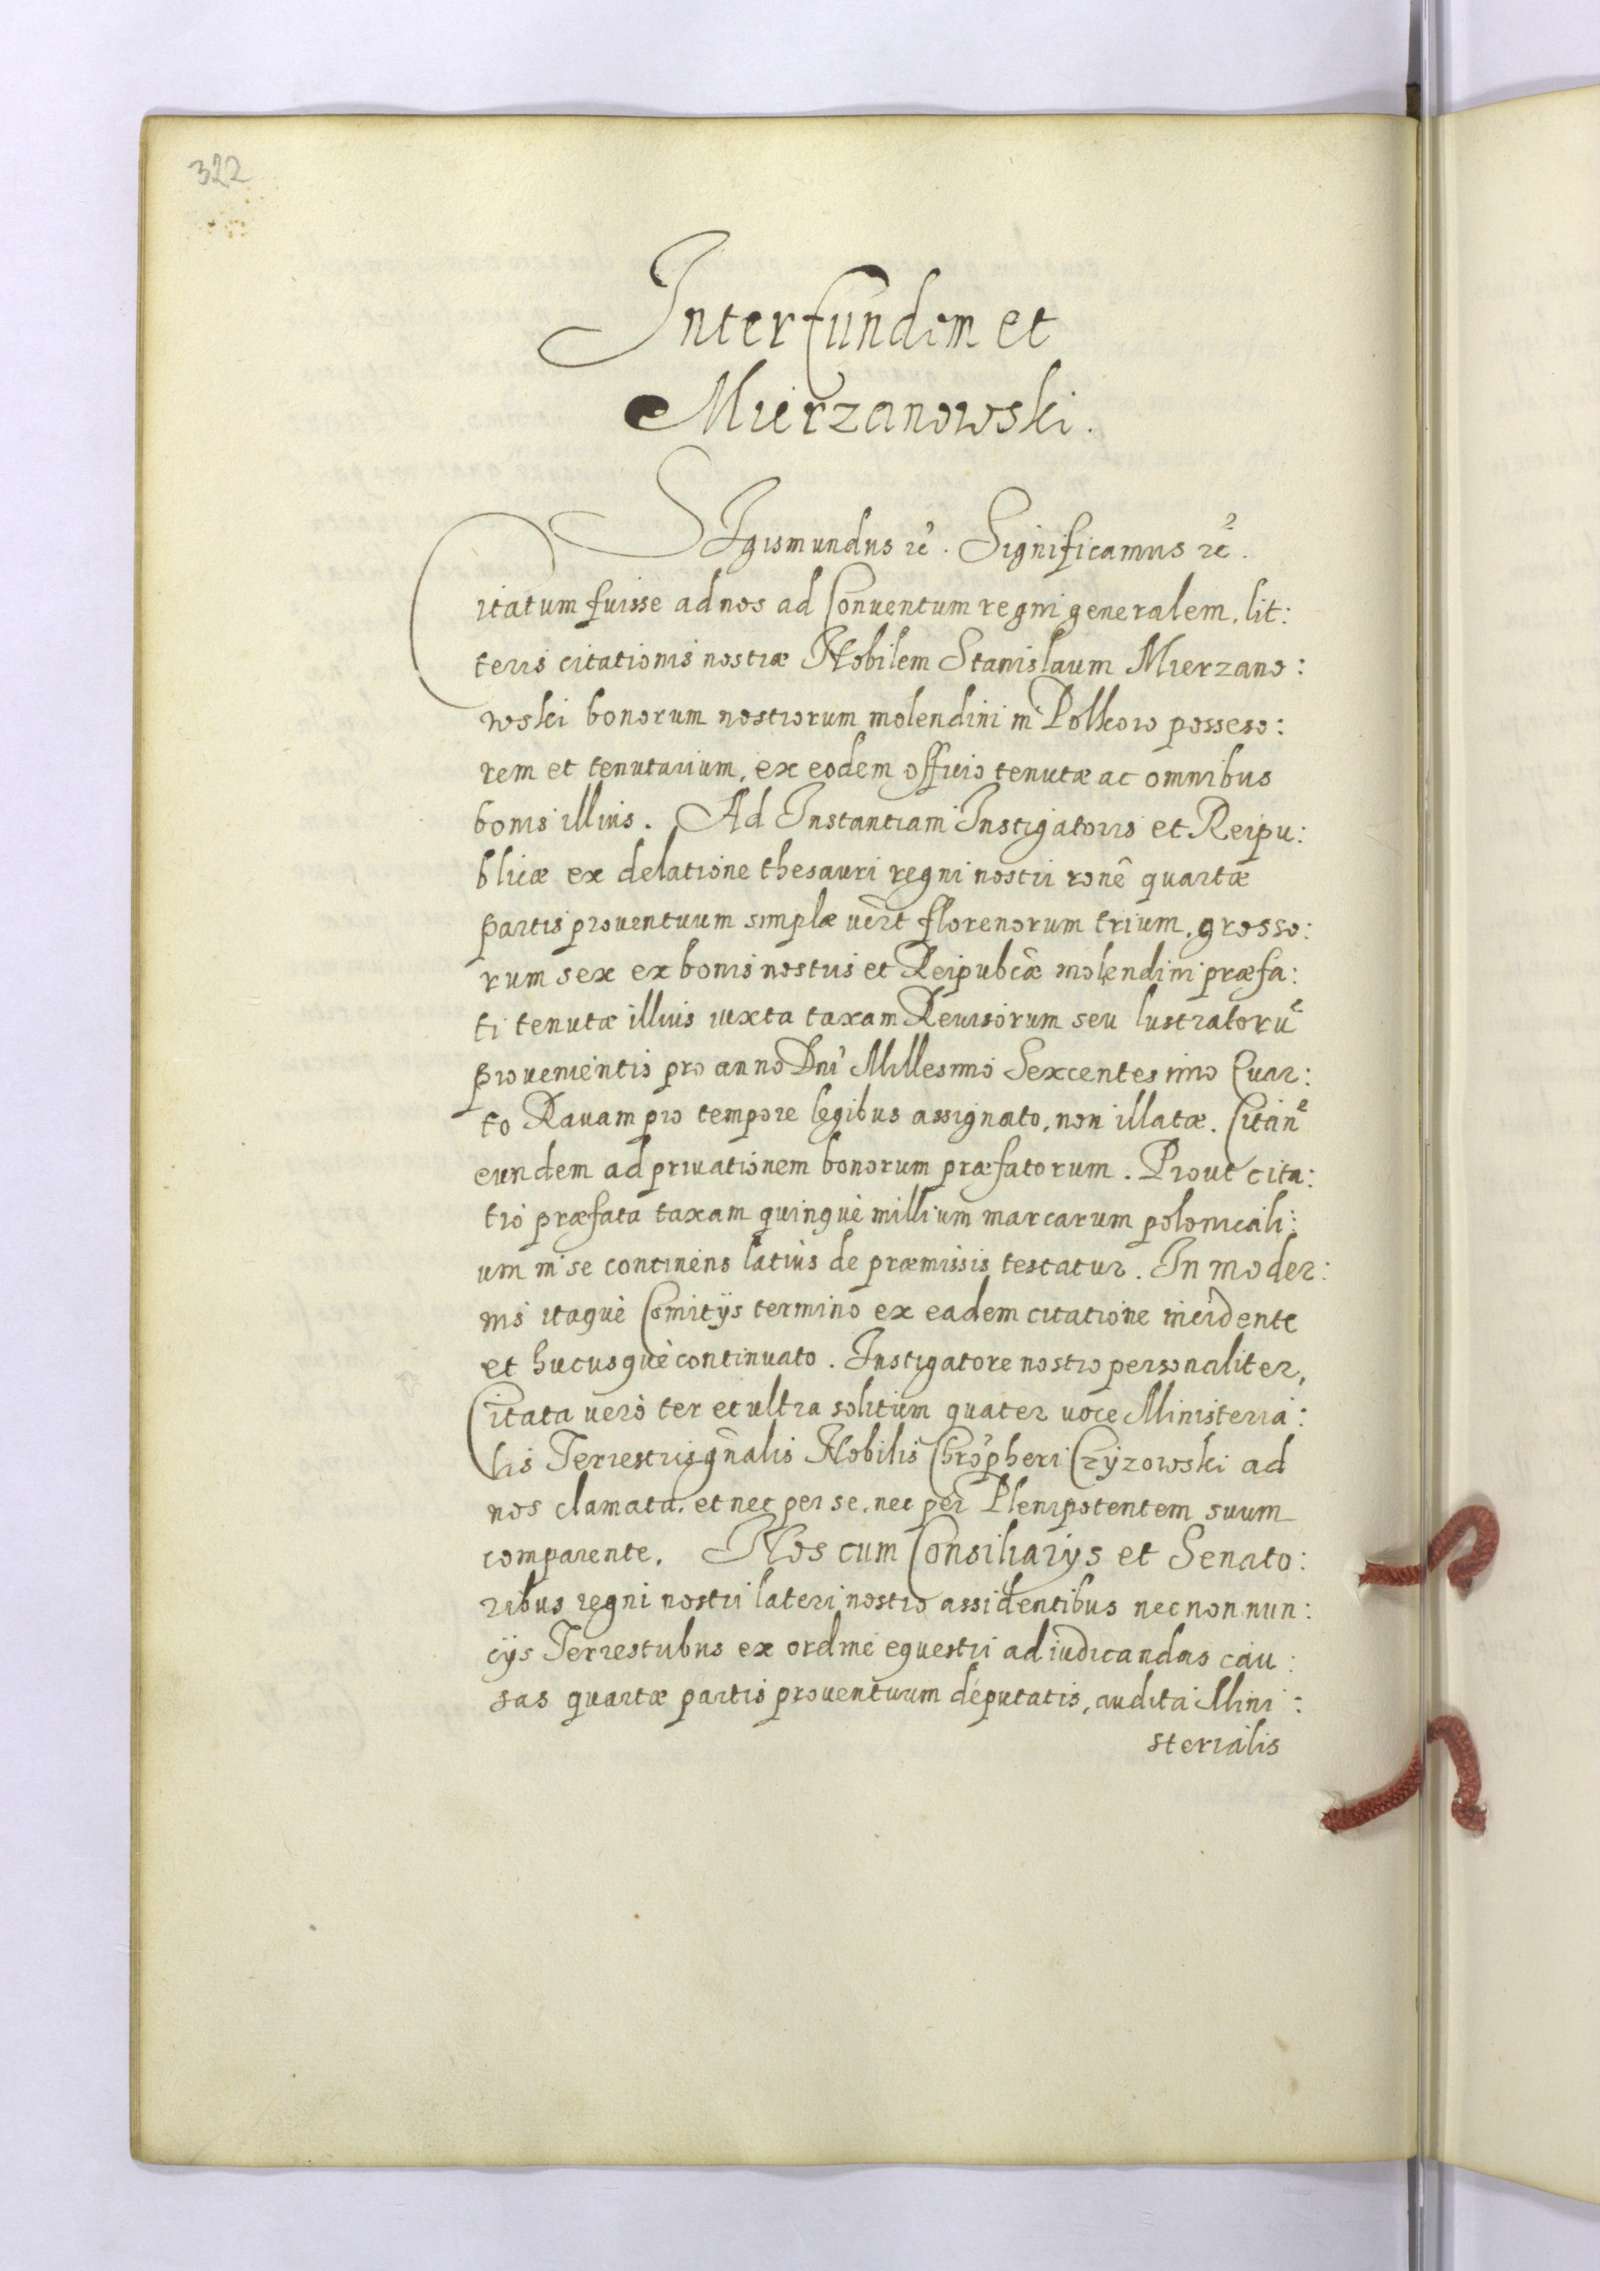 322
Inter eundem et
Mierzanowski.
Sigismundus rc̃. Significamus rc̃.
Citatum fuisse ad nos ad Conuentum regni generalem, lit:
teris citationis nostræ Nobilem Stanislaum Mierzano:
wski bonorum nostrorum molendini in Polkow posseso:
rem et tenutarium, ex eodem officio tenutæ ac omnibus
bonis illius. Ad Instantiam Instigatoris et Reipu:
blicæ ex delatione thesauri regni nostri ronẽ quartæ
partis prouentuum simplæ vert̃ florenorum trium, grosso:
rum sex ex bonis nostris et Reipubcæ molendini præfa:
ti tenutæ illius iuxta taxam Reuisorum seu lustratorũ
prouenientis pro anno Dni Millesimo Sexcentesimo Quar:
to Rauam pro tempore legibus assignato, non illatæ. Citañ
eundem ad priuationem bonorum præfatorum. Prout cita:
tio præfata taxam quinquè millium marcarum polonicali:
um in se continens latius de præmissis testatur. In moder:
nis itaquè Comitijs termino ex eadem citatione incidente
et hucusquè continuato. Instigatore nostro personaliter,
Citata verò ter et ultra solitum quater voce Ministeria:
lis Terrestris gñalis Nobilis Chrõpheri Czyzowski ad
nos clamata, et nec per se, nec per Plenipotentem suum
comparente. Nos cum Consiliarijs et Senato:
ribus regni nostri lateri nostro assidentibus nec non nun:
cijs Terrestribus ex ordine equestri ad iudicandas cau:
sas quartæ partis prouentuum deputatis, audita Mini:
sterialis